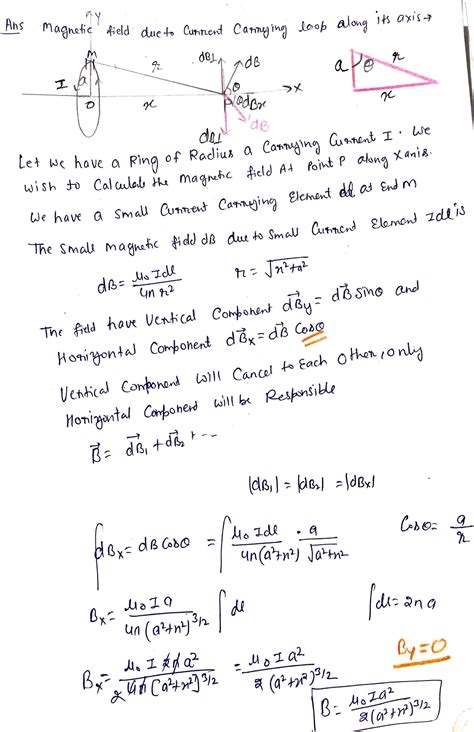 Ans Magnetic field due to Current Carrying loop along its axis →
Y
M
I
a
r
O
x
dB⊥
dB
θ
P
θ
dBx
→X
dB
dB⊥
a
θ
r
x
Let we have a Ring of Radius a Carrying Current I. We
wish to Calculate the Magnetic field At Point P along X axis.
We have a Small Current Carrying Element dl at End M
The Small Magnetic field dB due to Small Current Element Idl is
dB = μ₀ Idl / 4π r²   r = √x²+a²
The field have Vertical Component dBy = dB Sinθ and
Horizontal Component dBx = dB Cosθ
Vertical Component Will Cancel to Each Other, only
Horizontal Component will be Responsible
B = dB₁ + dB₂ + ...
|dB₁| = |dB₂| = |dBx|
∫dBx = dB Cosθ = ∫ μ₀ Idl / 4π(a²+x²) · a / √a²+x²   Cosθ = a / r
Bx = μ₀ I a / 4π (a²+x²)^3/2 ∫dl   ∫dl = 2πa
Bx = μ₀ I 2π a² / 2 4π (a²+x²)^3/2 = μ₀ I a² / 2 (a²+x²)^3/2   By = 0
B = μ₀ I a² / 2(a²+x²)^3/2